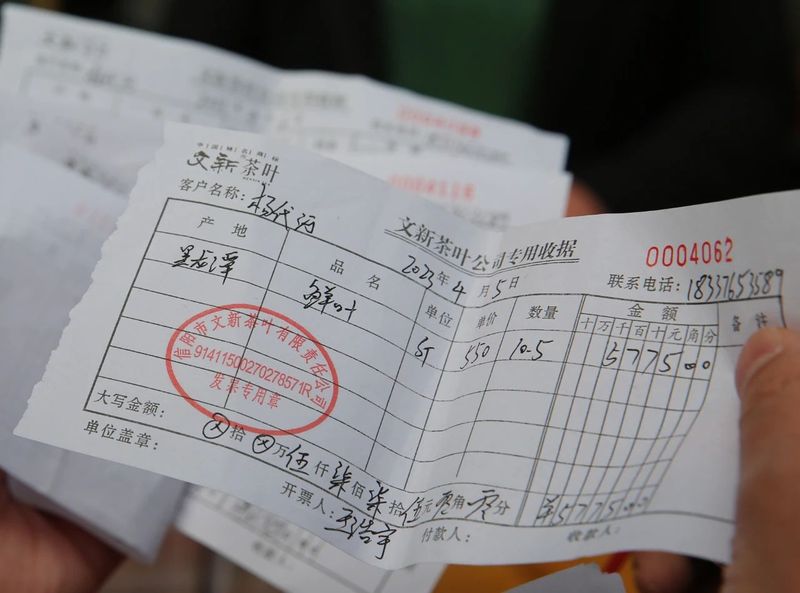 文新茶叶
文新茶叶公司专用收据
0004062
客户名称：杨代
2023年4月5日
联系电话：18337653589
产地 品名 单位 单价 数量 金额 备注
十万千百十元角分
黑龙潭 鲜叶 斤 550 10.5 577500
信阳市文新茶叶有限责任公司
91411500270278571R
发票专用章
大写金额：ⓧ拾ⓧ万伍仟柒佰柒拾伍元零角零分 ¥577500
单位盖章： 开票人： 付款人： 收款人：